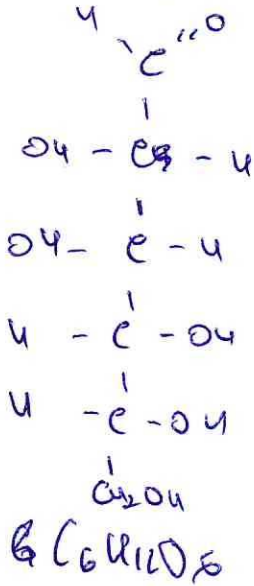 H C =O
OH - C - H
OH - C - H
H - C - OH
H - C - OH
CH2OH
C6H12O6